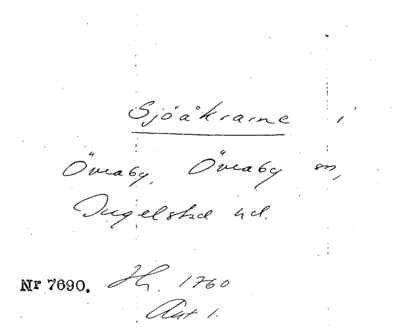 Sjöåkrarne i
Övraby, Övraby sn,
Ingelstad hd.
Nr 7690. Hr. 1760
Akt 1.